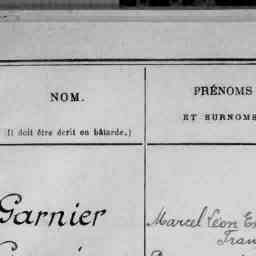 NOM.
(Il doit être écrit en bâtarde.)
PRÉNOMS
ET SURNOMS
Garnier
Marcel Léon